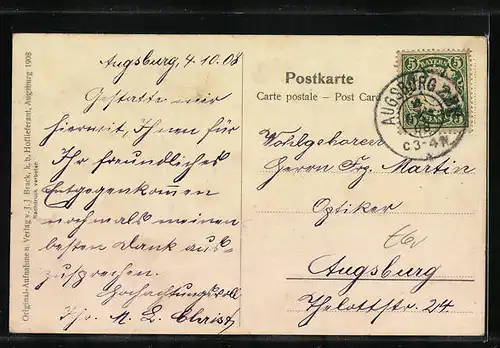 Augsburg, 4.10.08
Gestatte mir
hiermit, Ihnen für
Ihr freundliches
Entgegenkommen
nochmals meinen
besten Dank aus-
zusprechen.
Hochachtungsvoll
Ihr. M. L. Christ
Original-Aufnahme u. Verlag v. J. J. Brack, k. b. Hoflieferant, Augsburg 1908
Nachdruck verboten
Postkarte
Carte postale – Post Card
5 BAYERN 5
AUGSBURG
C3-4N
Wohlgeboren
Herrn Frz. Martin
Optiker
Augsburg
Thelottstr. 24